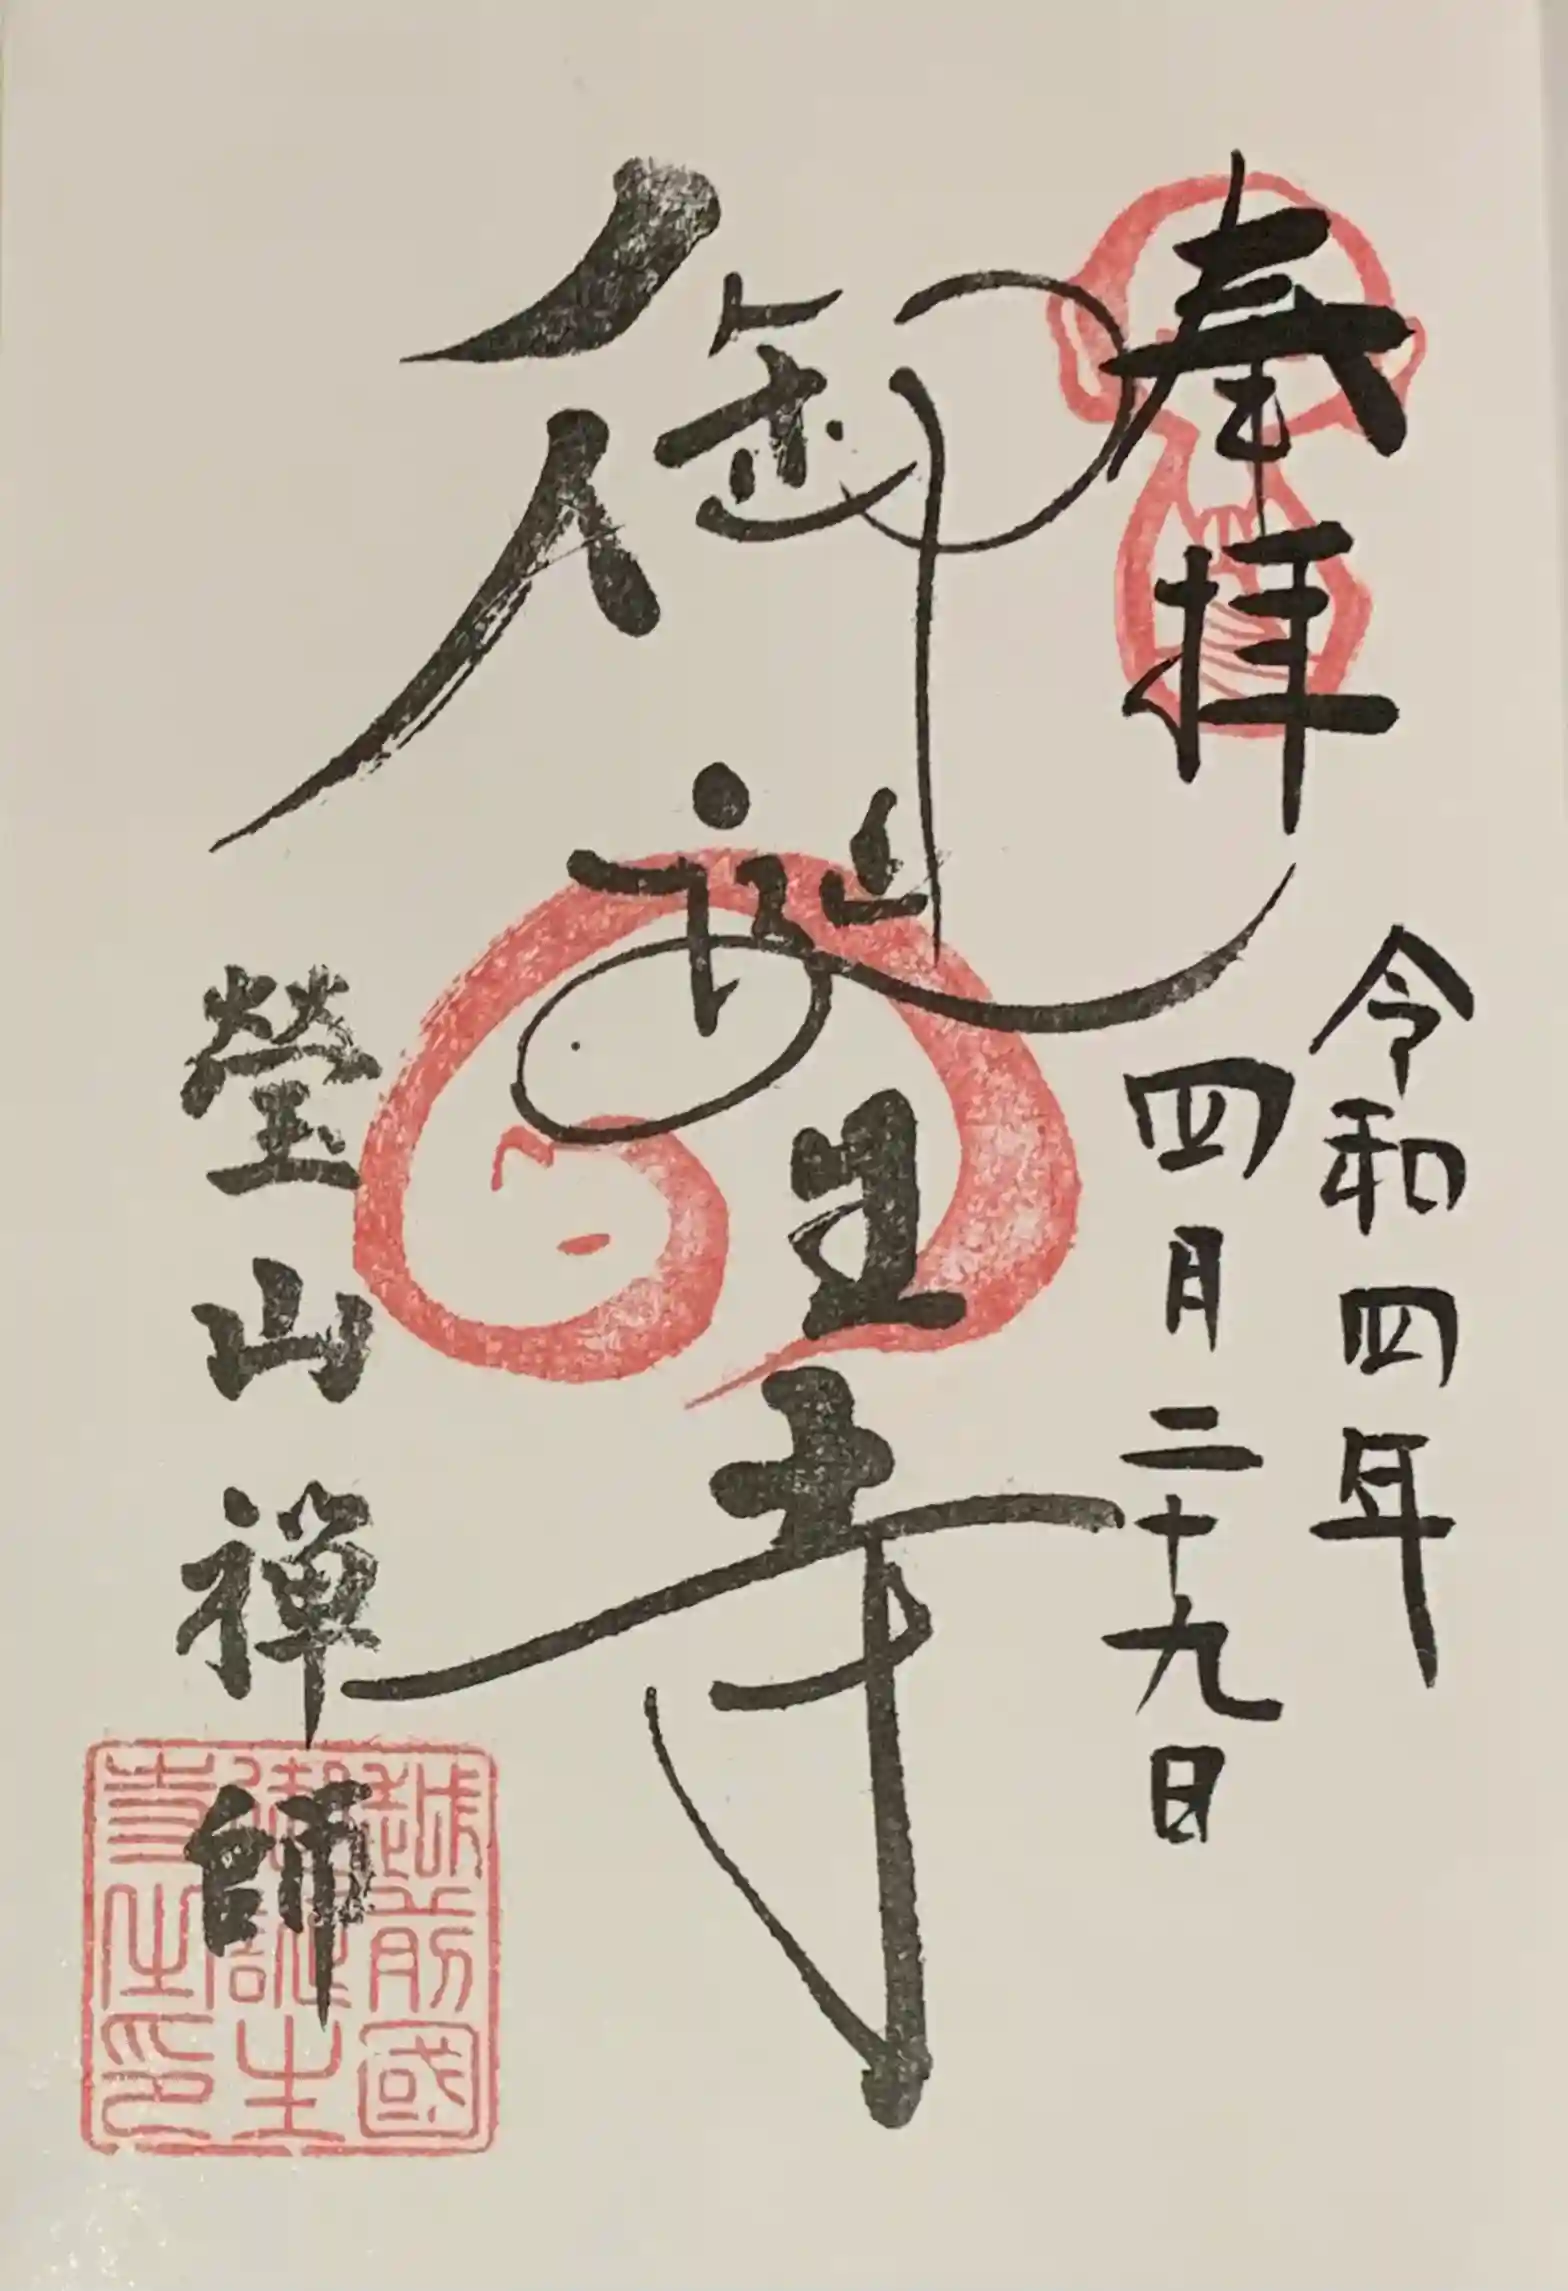 奉拝
令和四年
四月二十九日
御誕生寺
瑩山禅師
越前國
御誕生
寺住印